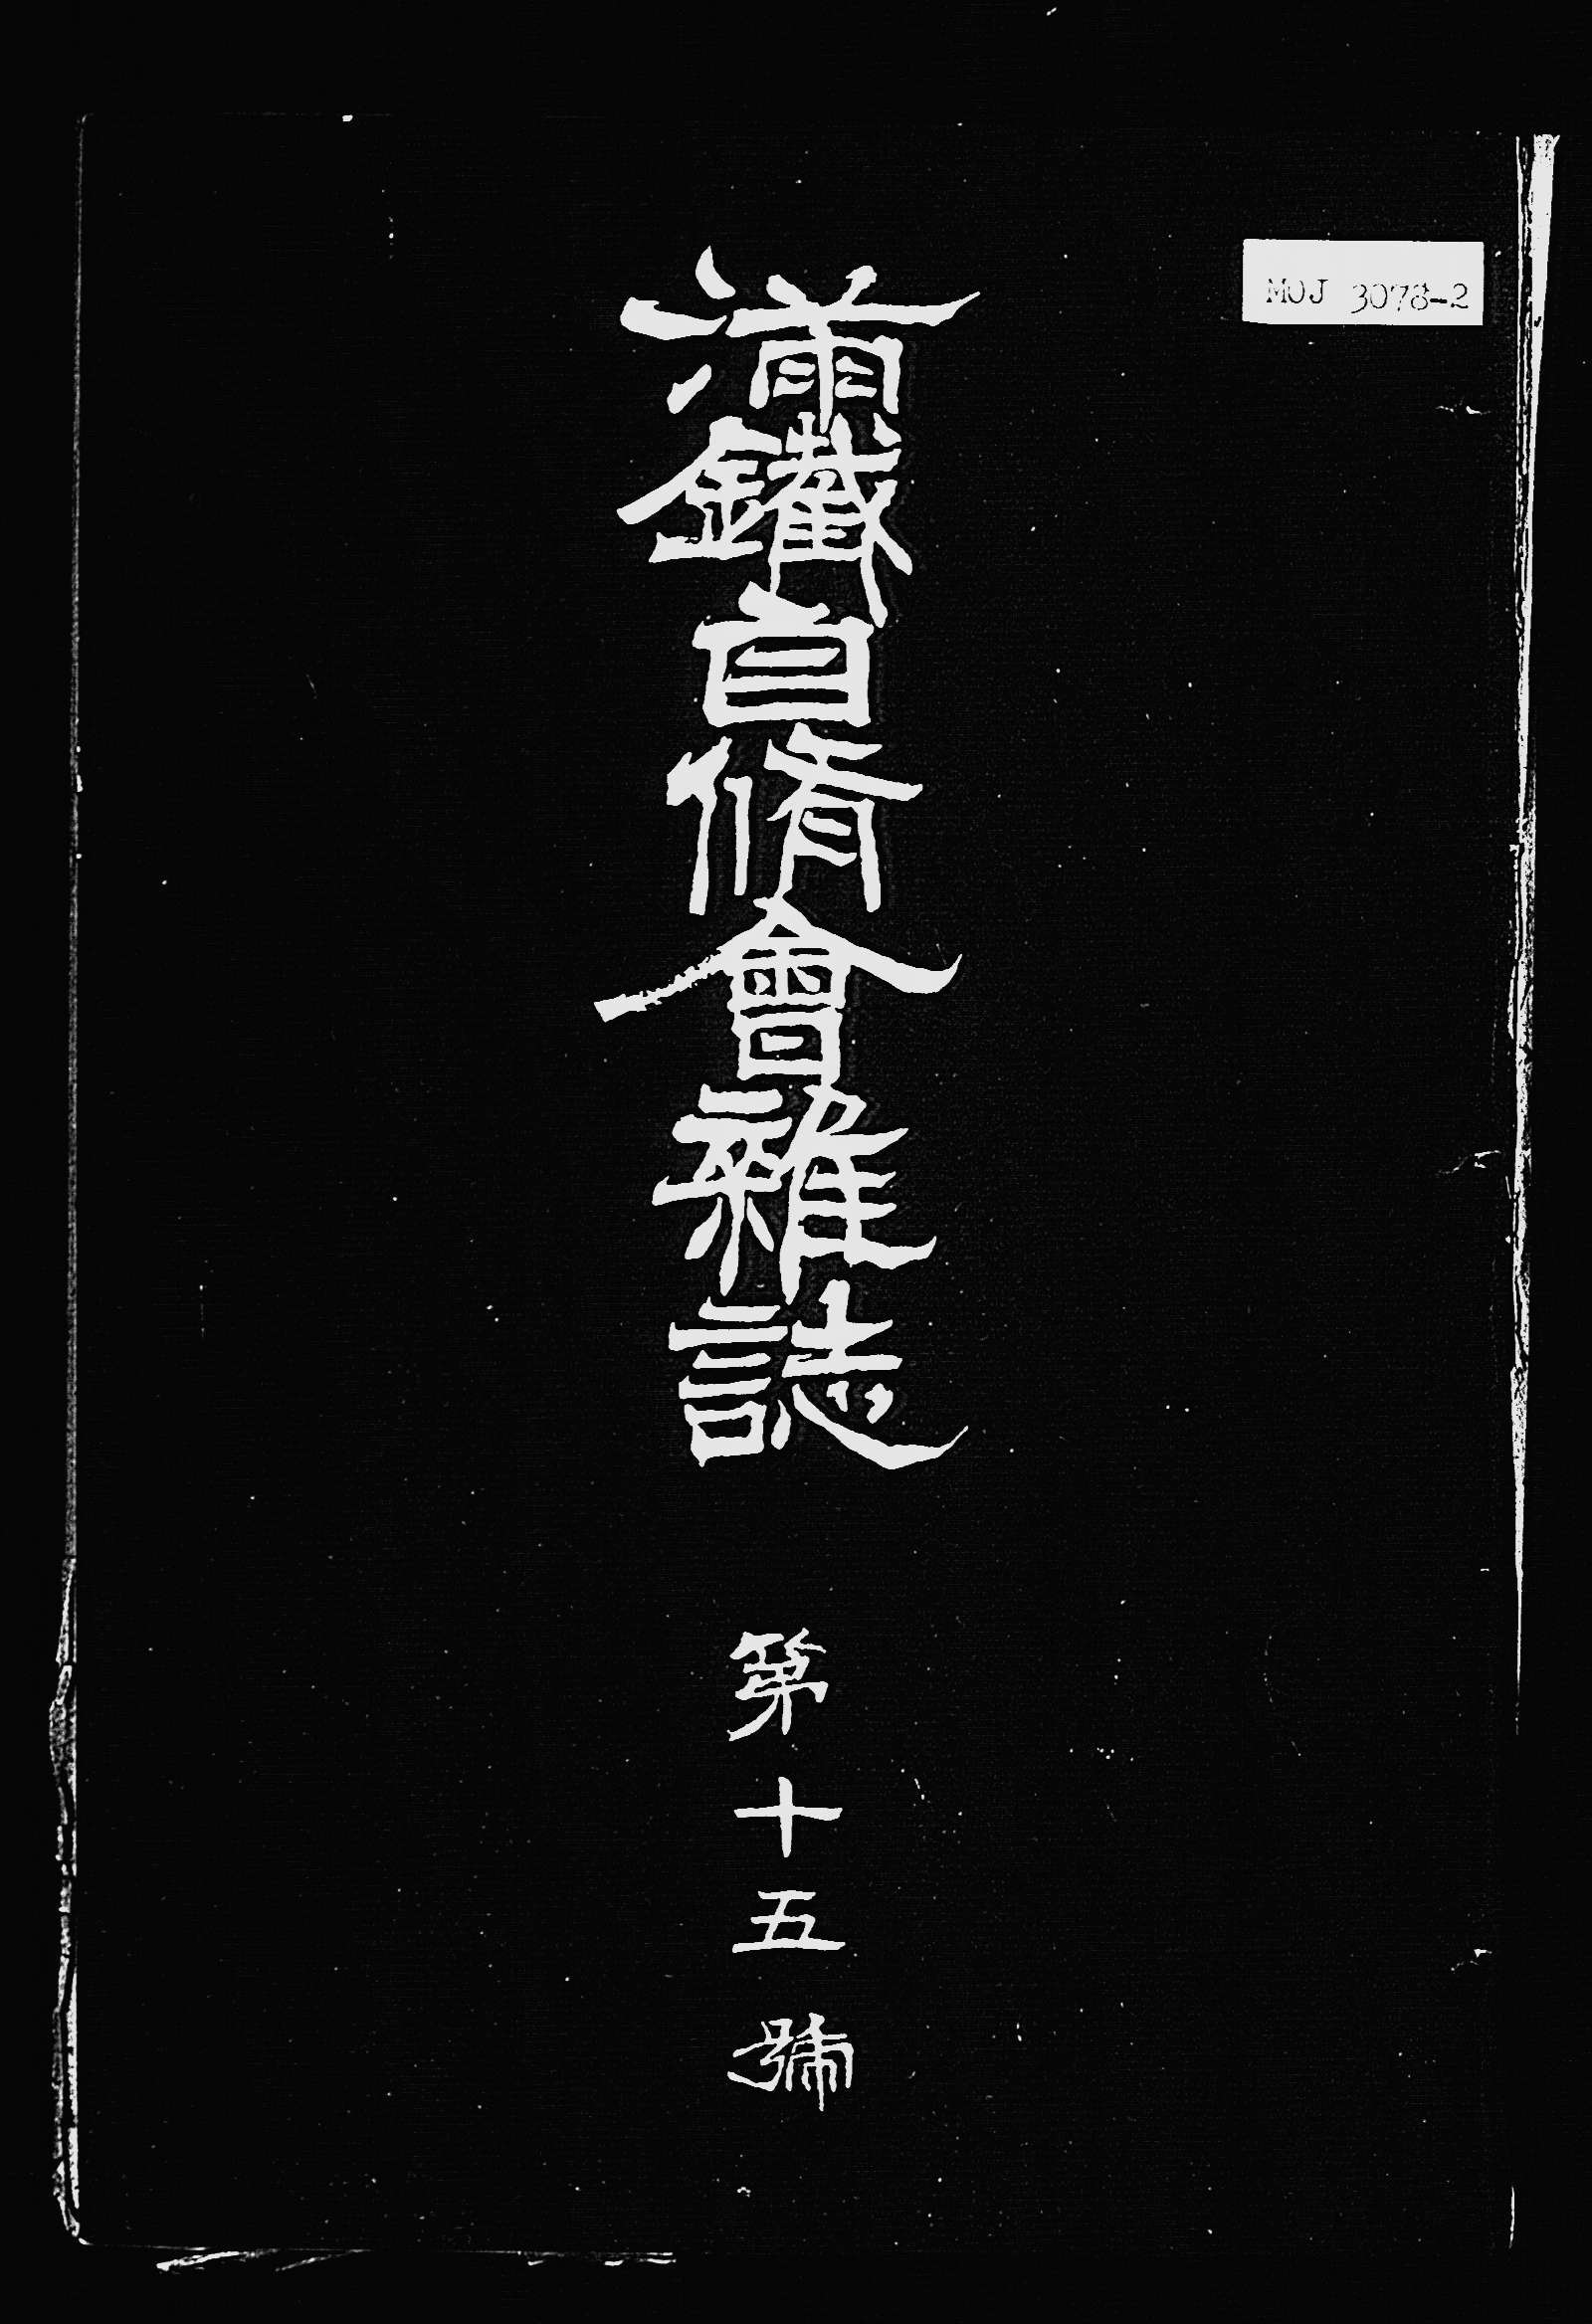 MOJ 3078-2
滿鐵自脩會雜誌
第十五號